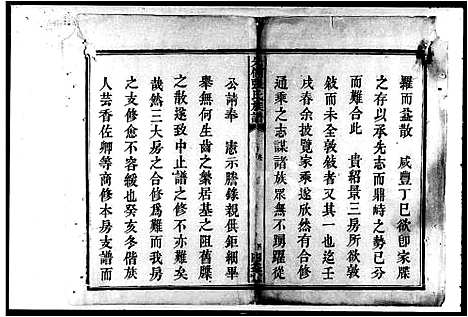 羅而益散　咸豐丁巳欲卽家牒
之存以承先志而鼎峙之勢已分
而難合此　貴紹景三房所欲敦
敍而未全敦敍者一也迄壬
戌春余披覽家乘遂欣然有合修
通乘之志謀諸族眾無不踴躍從
公請奉　憲示謄錄親供鉅細畢
舉無何生齒之繁居基之阻舊牒
之散遂致中止譜之修不亦難矣
哉然三大房之合修爲難而三房
之支修愈不容緩也癸亥冬偕族
人芸香佐卿等商修本房支譜而